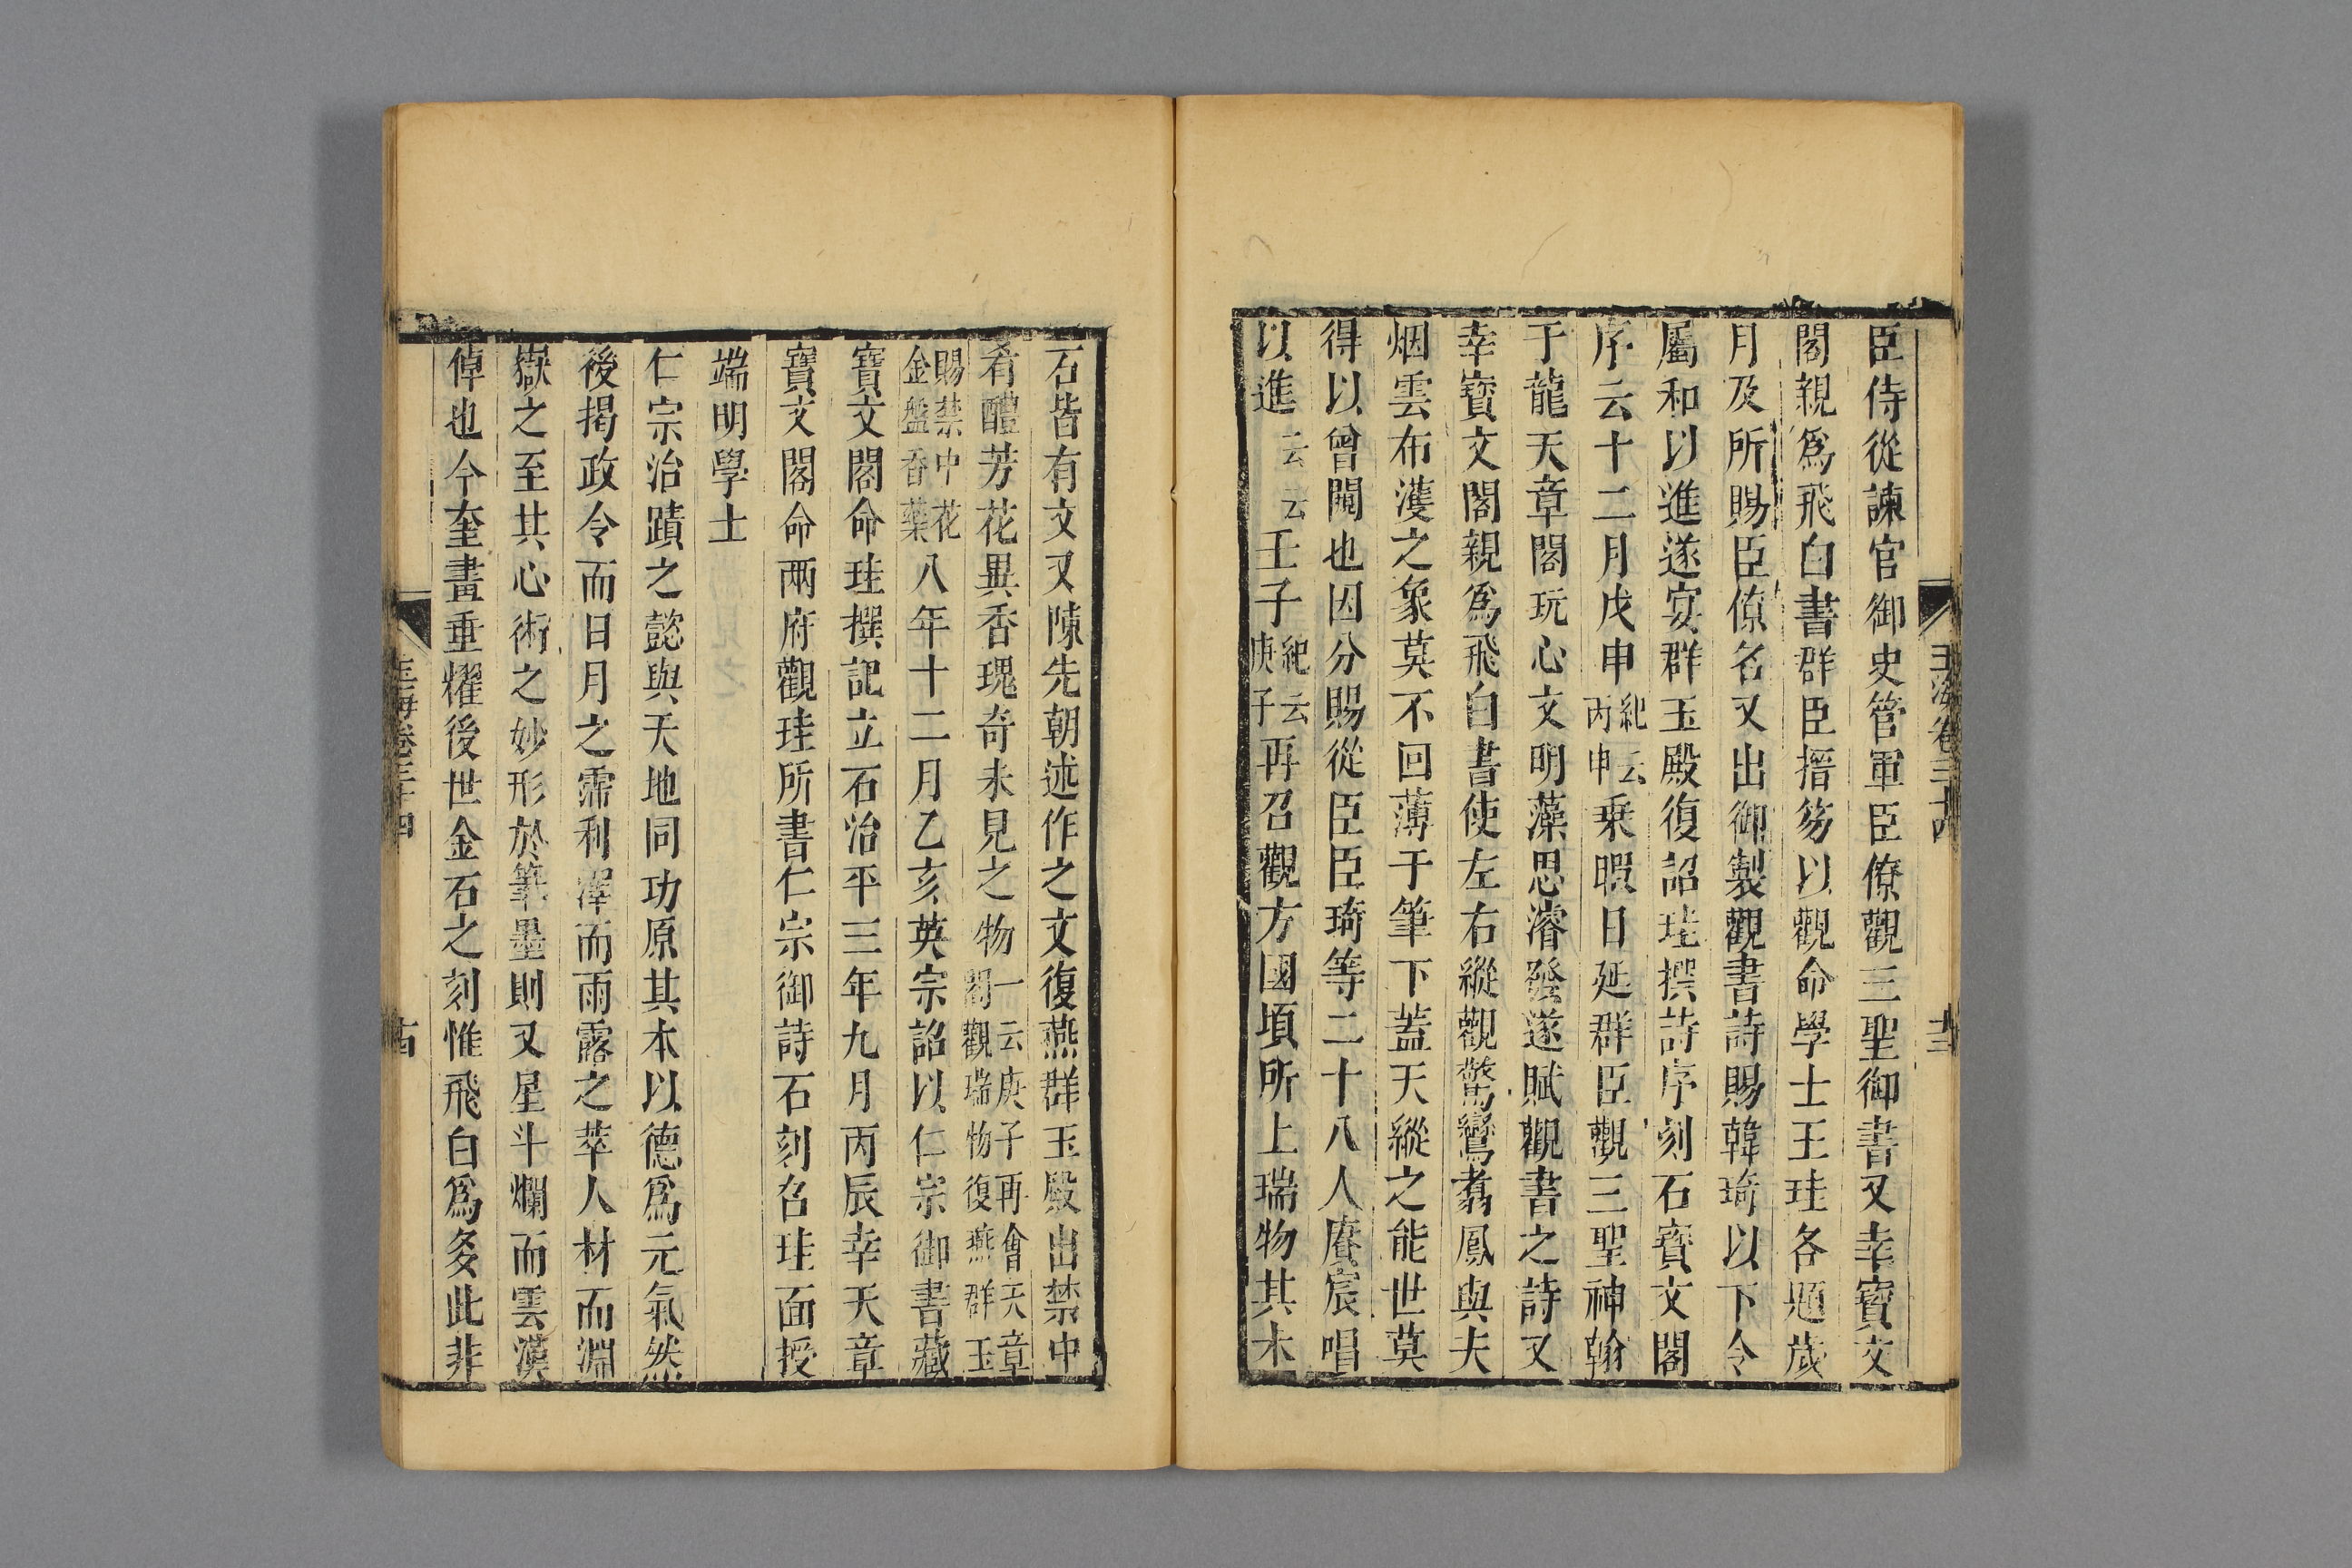 臣侍從諫官御史管軍臣僚觀三聖御書又幸寶文
閣親爲飛白書群臣搢笏以觀命學士王珪各題歲
月及所賜臣僚名又出御製觀書詩賜韓琦以下令
屬和以進遂宴群玉殿復詔珪撰詩序刻石寶文閣
序云十二月戊申紀云丙申乗暇日延群臣觀三聖神翰
于龍天章閣玩心文明藻思濬發遂賦觀書之詩又
幸寳文閣親爲飛白書使左右縱觀驚鸞翥鳳與夫
烟雲布濩之象莫不回薄于筆下蓋天縱之能世莫
得以曾闖也因分賜從臣臣琦等二十八人賡宸唱
以進云云壬子紀云庚子再召觀方國頃所上瑞物其木
石皆有文又陳先朝述作之文復燕群玉殿出禁中
肴醴芳花異香瑰奇未見之物一云庚子再會天章閣觀瑞物復燕群玉
賜禁中花金盤香藥八年十二月乙亥英宗詔以仁宗御書藏
寶文閣命珪撰記立石治平三年九月丙辰幸天章
寶文閣命兩府觀珪所書仁宗御詩石刻召珪面授
端明學士
仁宗治蹟之懿與天地同功原其本以德爲元氣然
後揭政令而日月之霈利澤而雨露之萃人材而淵
嶽之至其心術之妙形於筆墨則又星斗爛而雲漢
倬也今奎畫垂耀後世金石之刻惟飛白爲多此非
玉海卷三十四
十三
玉海卷三十四
十四